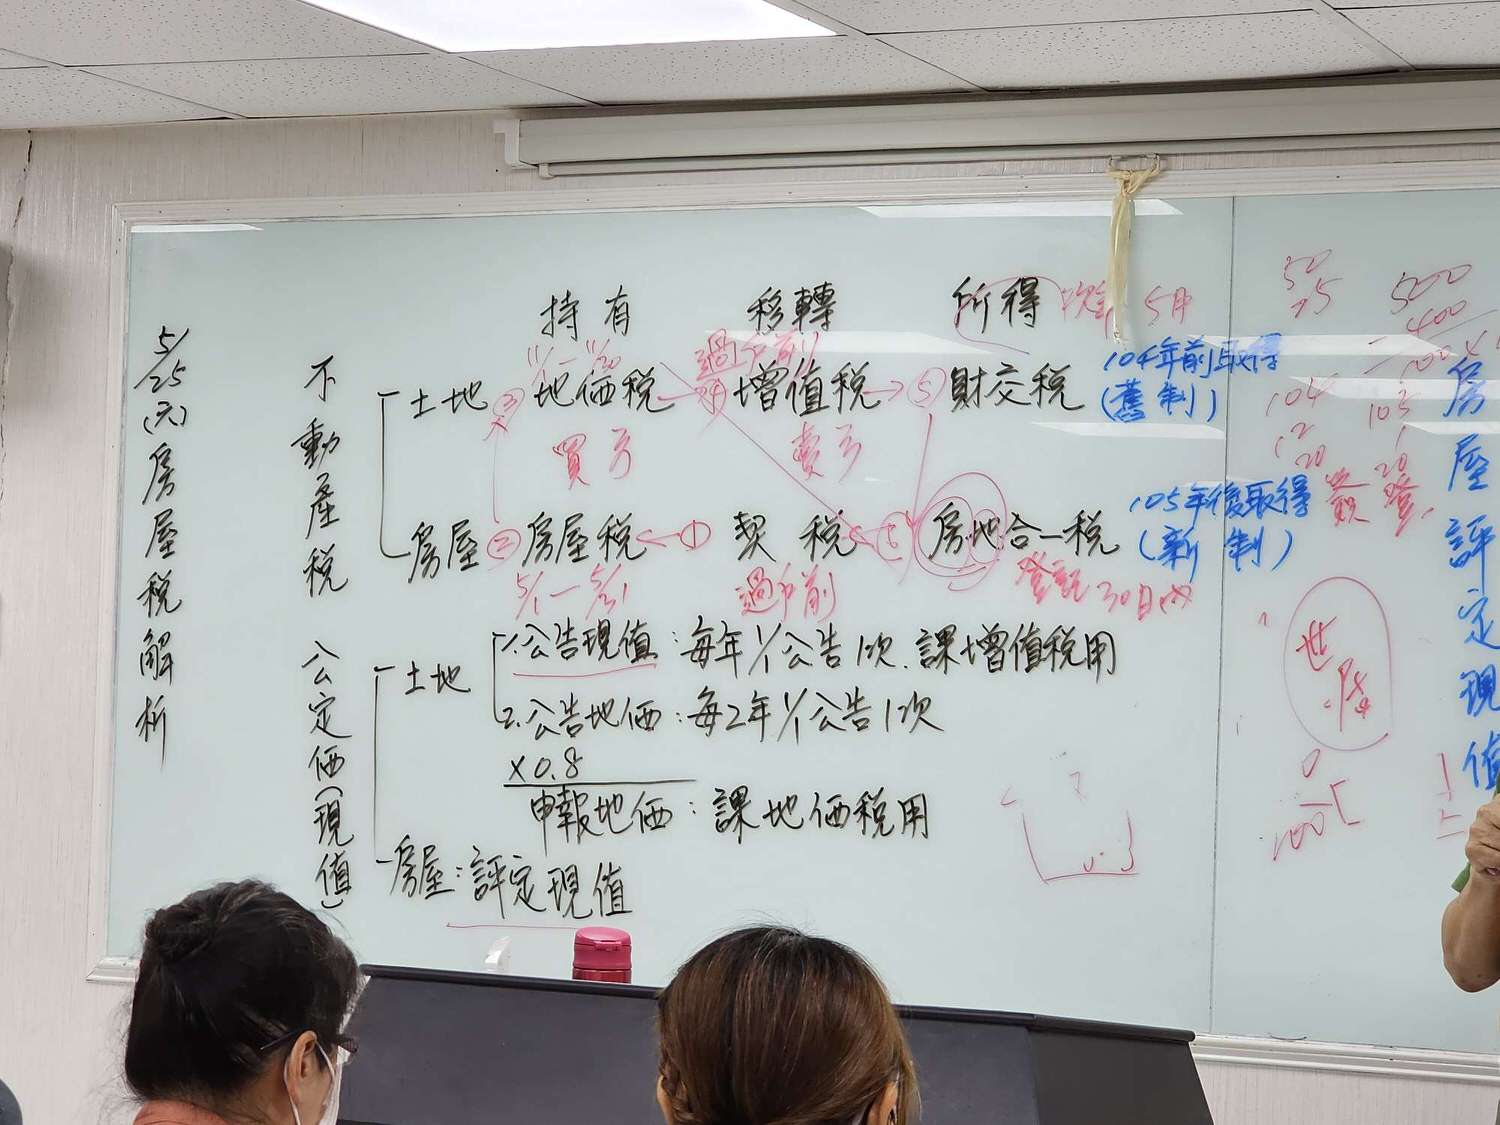 5/25(六)房屋税解析
不動產税
公定価(現值)
持有
移轉
所得 5月
11/1-11/30
過戶前
土地 ③ 地価税 ④ 增值税 ⑤ 財交税 104年前取得
(舊制)
買方
賣方
房屋 ② 房屋税 ① 契税 房地合一税 105年後取得
(新制)
5/1-5/31
過戶前
登記30日內
土地
1.公告現值:每年1/1公告1次.課增值税用
2.公告地価:每2年1/1公告1次
×0.8
申報地価:課地価税用
房屋:評定現值
50
500
400
104
12
20
105
1
20
買
登
0
100
房屋評定現值